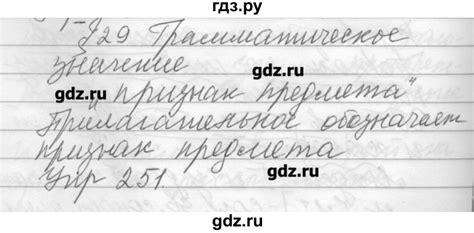 гдз.ру
§29 Грамматическое
значение
gdz.ru gdz.ru
"признак предмета"
Прилагательное обозначает
признак предмета
Упр 251.
gdz.ru gdz.ru
gdz.ru